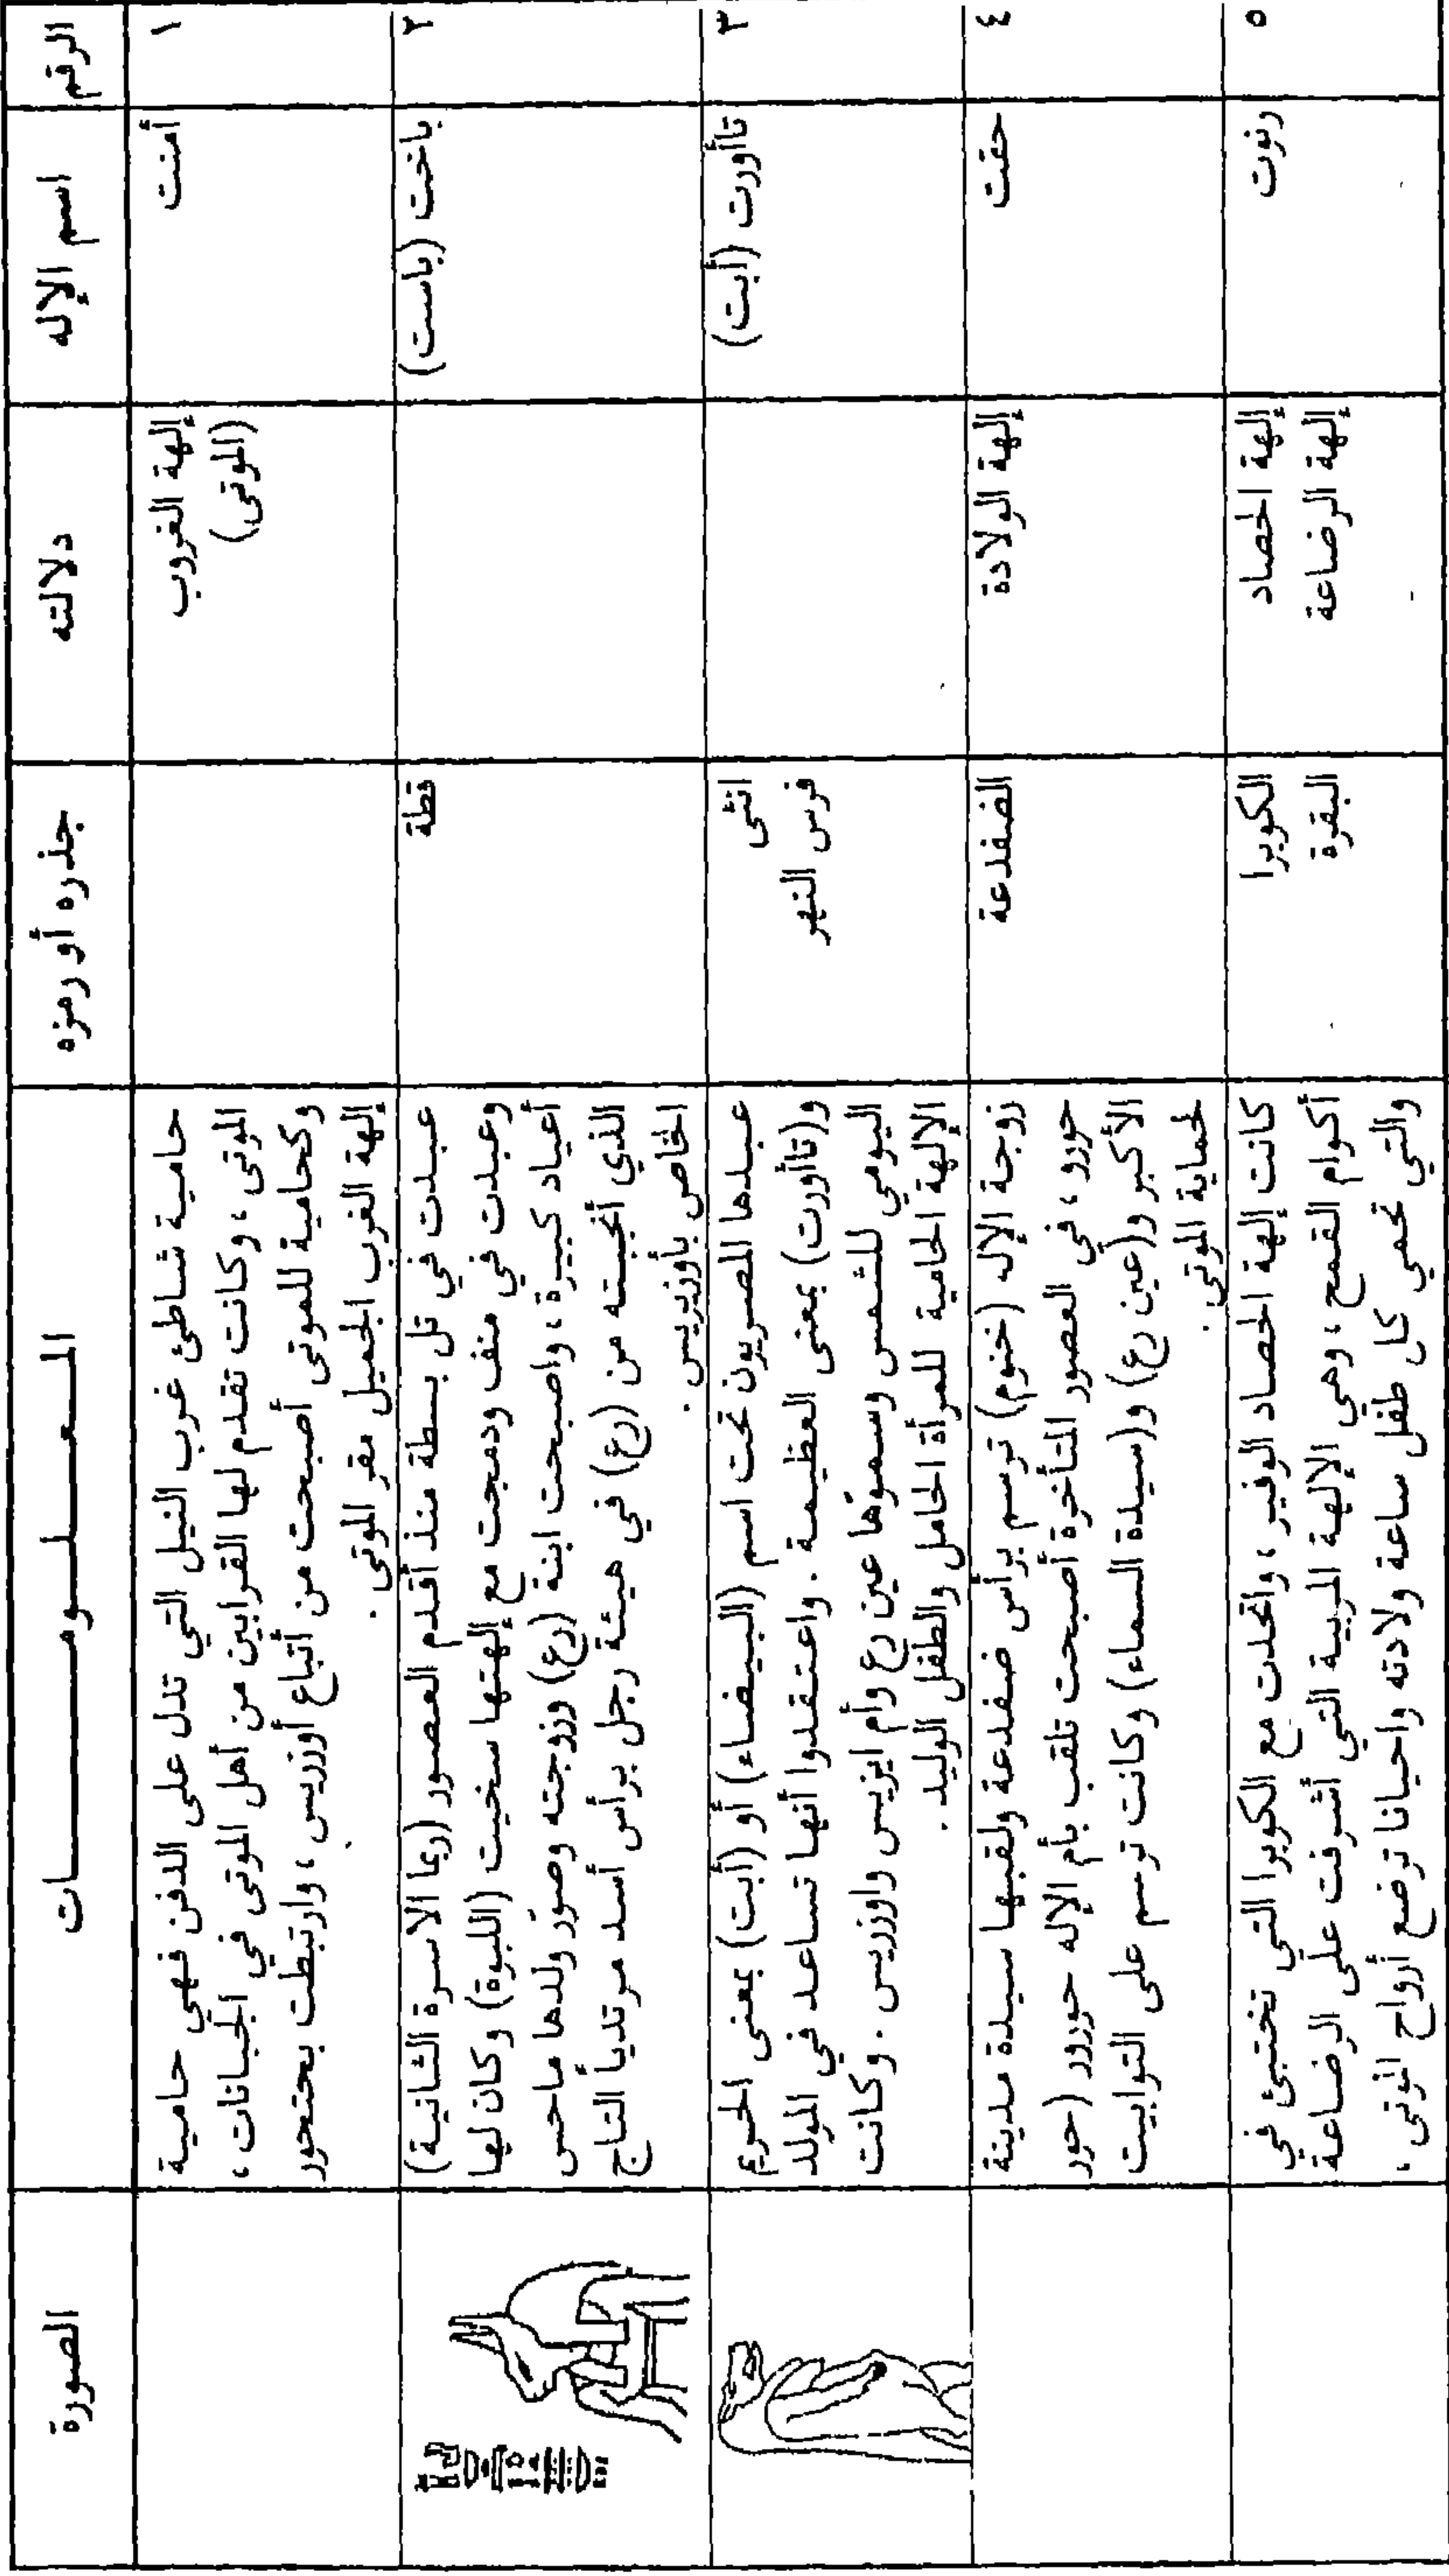 الرقم
اسم الإله
دلالته
جذره أو رمزه
المـعـلـومـات
الصورة
١
أمنت
إلهة الغروب
(الموتى)
حامية شاطئ غرب النيل التي تدل على الدفن فهي حامية
الموتى، وكانت تقدم لها القرابين من أهل الموتى في الجبانات،
وكحامية للموتى أصبحت من أتباع أوزريس، وارتبطت بحتحور
إلهة الغرب الجميل مقر الموتى.
٢
باخت (باست)
قطة
عبدت في تل بسطة منذ أقدم العصور (ربما الاسرة الثانية)
وعبدت في منف ودمجت مع إلهتها سخيت (اللبوة) وكان لها
أعياد كبيرة، واصبحت ابنة (رع) وزوجته وصوّر ولدها ماحس
الذي أنجبته من (رع) في هيئة رجل برأس أسد مرتدياً التاج
الخاص بأوزيريس.
٣
تاأورت (أبت)
انثى
فرس النهر
عبدها المصريون تحت اسم (البيضاء) أو (أبت) بمعنى الحريم
و(تاأورت) بمعنى العظيمة. واعتقدوا أنها تساعد في المولد
اليومي للشمس وسموّها عين رع وأم ايزيس واوزريس. وكانت
الإلهة الحامية للمرأة الحامل والطفل الوليد.
٤
حقت
إلهة الولادة
الضفدعة
زوجة الإله (خنوم) ترسم برأس ضفدعة ولقبها سيدة مدينة
حورو، في العصور المتأخرة أصبحت تلقب بأم الإله حورور (حور
الأكبر و(عين رع) و(سيدة السماء) وكانت ترسم على التوابيت
لحماية الموتى.
٥
رنوت
إلهة الحصاد
إلهة الرضاعة
الكوبرا
البقرة
كانت إلهة الحصاد الوفير، واتحدت مع الكوبرا التي تختبئ في
أكوام القمح، وهي الإلهة المربية التي أشرفت على الرضاعة
والتي تحمي كل طفل ساعة ولادته واحيانا ترضع أرواح الموتى.